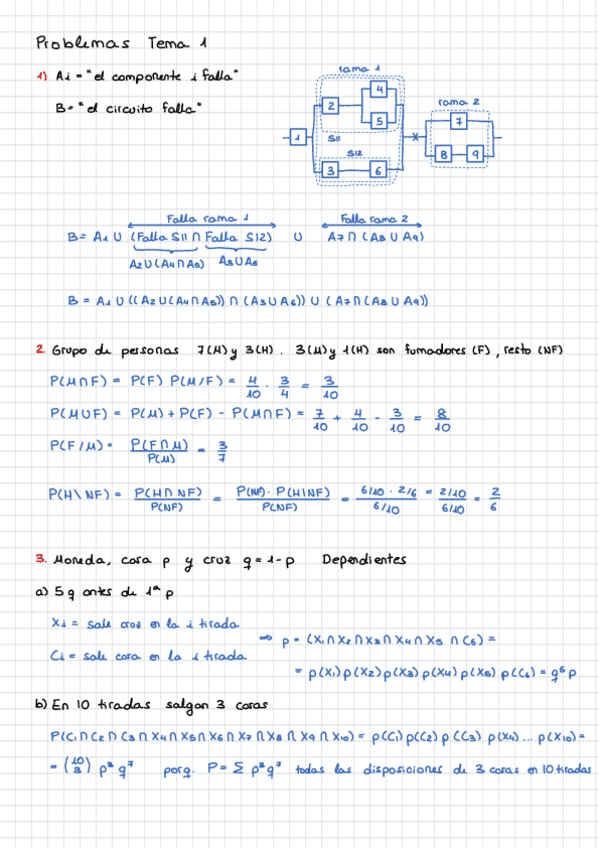 Problemas Tema 1
1) Ai = "el componente i falla"
B = "el circuito falla"
rama 1
4
2
rama 2
5
7
1
S11
x
S12
8 9
3 6
Falla rama 1 Falla rama 2
B = A1 ∪ (Falla S11 ∩ Falla S12) ∪ A7 ∩ (A8 ∪ A9)
A2 ∪ (A4 ∩ A5) A3 ∪ A6
B = A1 ∪ ((A2 ∪ (A4 ∩ A5)) ∩ (A3 ∪ A6)) ∪ (A7 ∩ (A8 ∪ A9))
2. Grupo de personas 7(M) y 3(H). 3(M) y 1(H) son fumadores (F), resto (NF)
P(M∩F) = P(F) P(M/F) = 4/10 · 3/4 = 3/10
P(M∪F) = P(M) + P(F) - P(M∩F) = 7/10 + 4/10 - 3/10 = 8/10
P(F/M) = P(F∩M)/P(M) = 3/7
P(H\NF) = P(H∩NF)/P(NF) = P(NF) · P(H|NF)/P(NF) = 6/10 · 2/6 / 6/10 = 2/10 / 6/10 = 2/6
3. Moneda, cara p y cruz q = 1-p Dependientes
a) 5 q antes de 1ª p
Xi = sale cruz en la i tirada
⇒ p = (X1 ∩ X2 ∩ X3 ∩ X4 ∩ X5 ∩ C6) =
Ci = sale cara en la i tirada
= p(X1) p(X2) p(X3) p(X4) p(X5) p(C6) = q⁵ p
b) En 10 tiradas salgan 3 caras
P(C1 ∩ C2 ∩ C3 ∩ X4 ∩ X5 ∩ X6 ∩ X7 ∩ X8 ∩ X9 ∩ X10) = p(C1) p(C2) p(C3) p(X4) ... p(X10) =
= (10 3) p³ q⁷ porq. P = Σ p³ q⁷ todas las disposiciones de 3 caras en 10 tiradas